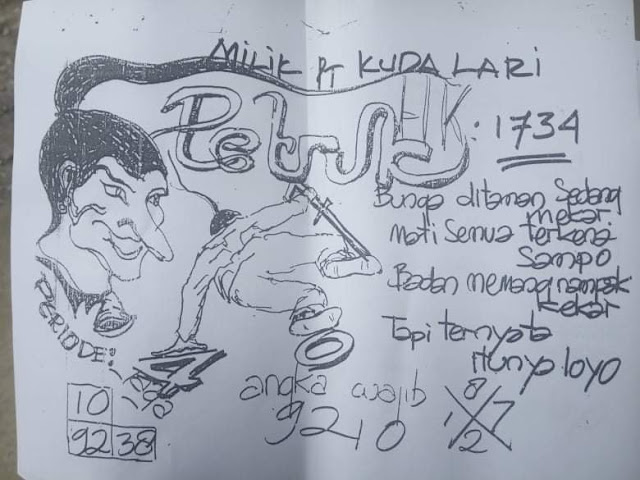 MILIK PT KUDA LARI
Petruk
HK: 1734
Bunga ditaman Sedang
mekar
mati semua terkena
Sampo
Badan memang nampak
kekar
Tapi ternyata
itunya loyo
PERIODE:
4
0
angka wajib
9210
8
1 7
2
10
92 38